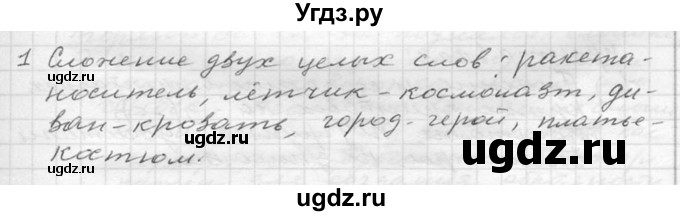 Угдз.ру
1 Сложение двух целых слов: ракета-
носитель, лётчик-космонавт, ди-
ван-кровать, город-герой, платье-
костюм.
ugdz.ru
ugdz.ru
ugdz.ru
ugdz.ru
ugdz.ru
ugdz.ru
ugdz.ru